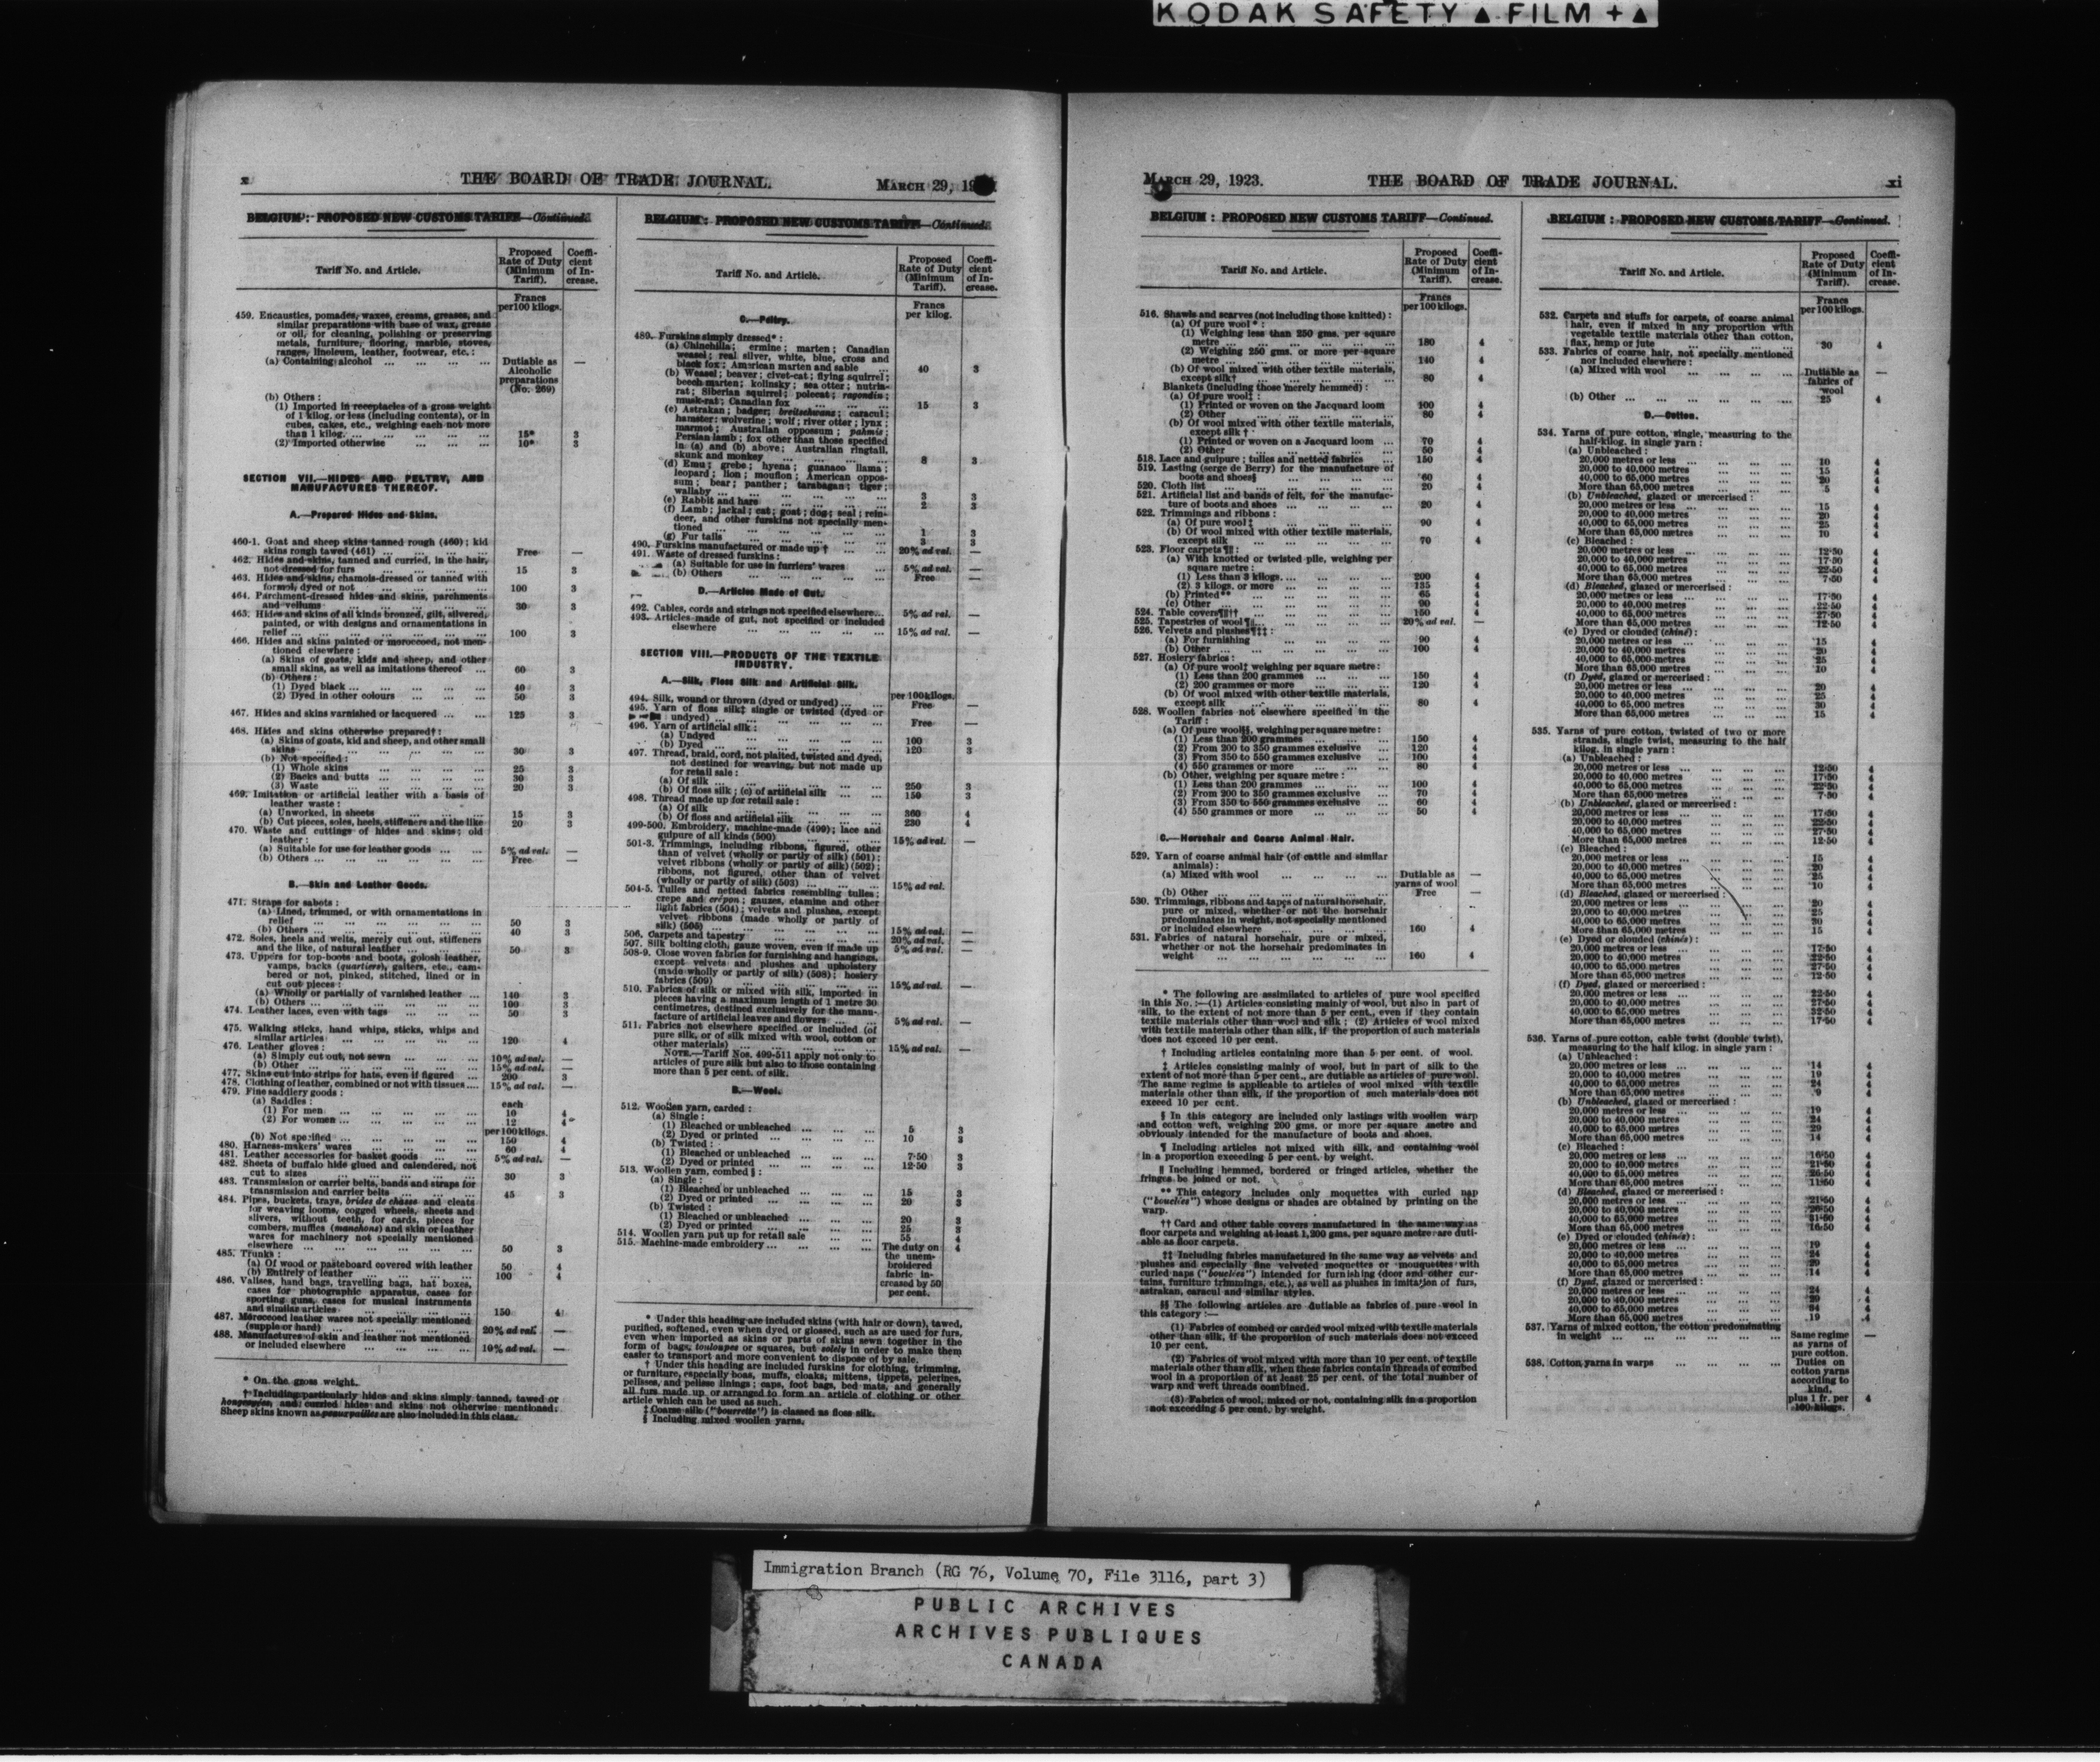 KODAK SAFETY ▲ FILM + ▲
x THE BOARD OF TRADE JOURNAL. MARCH 29, 19
BELGIUM: PROPOSED NEW CUSTOMS TARIFF—Continued.
Tariff No. and Article. Proposed Rate of Duty (Minimum Tariff). Coefficient of Increase.
Francs per 100 kilogs.
459. Encaustics, pomades, waxes, creams, greases, and
similar preparations with base of wax, grease
or oil, for cleaning, polishing or preserving
metals, furniture, flooring, marble, stoves,
ranges, linoleum, leather, footwear, etc.:
(a) Containing alcohol ... Dutiable as Alcoholic preparations (No. 269) —
(b) Others:
(1) Imported in receptacles of a gross weight
of 1 kilog. or less (including contents), or in
cubes, cakes, etc., weighing each not more
than 1 kilog. ... 15* 3
(2) Imported otherwise ... 10* 3
SECTION VII.—HIDES AND PELTRY, AND
MANUFACTURES THEREOF.
A.—Prepared Hides and Skins.
460-1. Goat and sheep skins tanned rough (460); kid
skins rough tawed (461) ... Free —
462. Hides and skins, tanned and curried, in the hair,
not dressed for furs ... 15 3
463. Hides and skins, chamois-dressed or tanned with
formol, dyed or not ... 100 3
464. Parchment-dressed hides and skins, parchments
and vellums ... 30 3
465. Hides and skins of all kinds bronzed, gilt, silvered,
painted, or with designs and ornamentations in
relief ... 100 3
466. Hides and skins painted or moroccoed, not mentioned elsewhere:
(a) Skins of goats, kids and sheep, and other
small skins, as well as imitations thereof ... 60 3
(b) Others:
(1) Dyed black ... 40 3
(2) Dyed in other colours ... 50 3
467. Hides and skins varnished or lacquered ... 125 3
468. Hides and skins otherwise prepared†:
(a) Skins of goats, kid and sheep, and other small
skins ... 30 3
(b) Not specified:
(1) Whole skins ... 25 3
(2) Backs and butts ... 30 3
(3) Waste ... 20 3
469. Imitation or artificial leather with a basis of
leather waste:
(a) Unworked, in sheets ... 15 3
(b) Cut pieces, soles, heels, stiffeners and the like 20 3
470. Waste and cuttings of hides and skins; old
leather:
(a) Suitable for use for leather goods ... 5% ad val. —
(b) Others ... Free —
B.—Skin and Leather Goods.
471. Straps for sabots:
(a) Lined, trimmed, or with ornamentations in
relief ... 50 3
(b) Others ... 40 3
472. Soles, heels and welts, merely cut out, stiffeners
and the like, of natural leather ... 50 3
473. Uppers for top-boots and boots, golosh leather,
vamps, backs (quartiers), gaiters, etc., cambered or not, pinked, stitched, lined or in
cut out pieces:
(a) Wholly or partially of varnished leather ... 140 3
(b) Others ... 100 3
474. Leather laces, even with tags ... 50 3
475. Walking sticks, hand whips, sticks, whips and
similar articles ... 120 4
476. Leather gloves:
(a) Simply cut out, not sewn ... 10% ad val. —
(b) Other ... 15% ad val. —
477. Skins cut into strips for hats, even if figured ... 200 3
478. Clothing of leather, combined or not with tissues ... 15% ad val. —
479. Fine saddlery goods:
(a) Saddles: each
(1) For men ... 10 4
(2) For women ... 12 4
per 100 kilogs.
(b) Not specified ... 150 4
480. Harness-makers' wares ... 60 4
481. Leather accessories for basket goods ... 5% ad val. —
482. Sheets of buffalo hide glued and calendered, not
cut to sizes ... 30 3
483. Transmission or carrier belts, bands and straps for
transmission and carrier belts ... 45 3
484. Pipes, buckets, trays, brides de chasse and cleats
for weaving looms, cogged wheels, sheets and
slivers, without teeth, for cards, pieces for
combers, muffles (manchons) and skin or leather
wares for machinery not specially mentioned
elsewhere ... 50 3
485. Trunks:
(a) Of wood or pasteboard covered with leather 50 4
(b) Entirely of leather ... 100 4
486. Valises, hand bags, travelling bags, hat boxes,
cases for photographic apparatus, cases for
sporting guns, cases for musical instruments
and similar articles ... 150 4
487. Moroccoed leather wares not specially mentioned
(supple or hard) ... 20% ad val. —
488. Manufactures of skin and leather not mentioned
or included elsewhere ... 10% ad val. —
* On the gross weight.
† Including particularly hides and skins simply tanned, tawed or
and curried hides and skins not otherwise mentioned.
Sheep skins known as are also included in this class.
BELGIUM: PROPOSED NEW CUSTOMS TARIFF—Continued.
Tariff No. and Article. Proposed Rate of Duty (Minimum Tariff). Coefficient of Increase.
Francs per kilog.
C.—Peltry.
489. Furskins simply dressed*:
(a) Chinchilla; ermine; marten; Canadian
weasel; real silver, white, blue, cross and
black fox; American marten and sable ... 40 3
(b) Weasel; beaver; civet-cat; flying squirrel;
beech marten; kolinsky; sea otter; nutria-
rat; Siberian squirrel; polecat; ragondin;
musk-rat; Canadian fox ... 15 3
(c) Astrakan; badger; breitschwanz; caracul;
hamster; wolverine; wolf; river otter; lynx;
marmot; Australian opossum; pahmis;
Persian lamb; fox other than those specified
in (a) and (b) above; Australian ringtail,
skunk and monkey ... 8 3
(d) Emu; grebe; hyena; guanaco llama;
leopard; lion; mouflon; American oppossum; bear; panther; tarabagan; tiger;
wallaby ... 3 3
(e) Rabbit and hare ... 2 3
(f) Lamb; jackal; cat; goat; dog; seal; reindeer, and other furskins not specially mentioned ... 1 3
(g) Fur tails ... 3 3
490. Furskins manufactured or made up † ... 20% ad val. —
491. Waste of dressed furskins:
(a) Suitable for use in furriers' wares ... 5% ad val. —
(b) Others ... Free —
D.—Articles Made of Gut.
492. Cables, cords and strings not specified elsewhere... 5% ad val. —
493. Articles made of gut, not specified or included
elsewhere ... 15% ad val. —
SECTION VIII.—PRODUCTS OF THE TEXTILE
INDUSTRY.
A.—Silk, Floss Silk and Artificial Silk.
per 100 kilogs.
494. Silk, wound or thrown (dyed or undyed) ... Free —
495. Yarn of floss silk‡ single or twisted (dyed or
undyed) ... Free —
496. Yarn of artificial silk:
(a) Undyed ... 100 3
(b) Dyed ... 120 3
497. Thread, braid, cord, not plaited, twisted and dyed,
not destined for weaving, but not made up
for retail sale:
(a) Of silk ... 250 3
(b) Of floss silk; (c) of artificial silk ... 150 3
498. Thread made up for retail sale:
(a) Of silk ... 360 4
(b) Of floss and artificial silk ... 230 4
499-500. Embroidery, machine-made (499); lace and
guipure of all kinds (500) ... 15% ad val. —
501-3. Trimmings, including ribbons, figured, other
than of velvet (wholly or partly of silk) (501);
velvet ribbons (wholly or partly of silk) (502);
ribbons, not figured, other than of velvet
(wholly or partly of silk) (503) ... 15% ad val.
504-5. Tulles and netted fabrics resembling tulles;
crepe and crépon; gauzes, etamine and other
light fabrics (504); velvets and plushes, except
velvet ribbons (made wholly or partly of
silk) (505) ... 15% ad val. —
506. Carpets and tapestry ... 20% ad val. —
507. Silk bolting cloth, gauze woven, even if made up 5% ad val. —
508-9. Close woven fabrics for furnishing and hangings,
except velvets and plushes and upholstery
(made wholly or partly of silk) (508); hosiery
fabrics (509) ... 15% ad val. —
510. Fabrics of silk or mixed with silk, imported in
pieces having a maximum length of 1 metre 30
centimetres, destined exclusively for the manufacture of artificial leaves and flowers ... 5% ad val. —
511. Fabrics not elsewhere specified or included (of
pure silk, or of silk mixed with wool, cotton or
other materials) ... 15% ad val. —
NOTE.—Tariff Nos. 499-511 apply not only to
articles of pure silk but also to those containing
more than 5 per cent. of silk.
B.—Wool.
512. Woollen yarn, carded:
(a) Single:
(1) Bleached or unbleached ... 5 3
(2) Dyed or printed ... 10 3
(b) Twisted:
(1) Bleached or unbleached ... 7·50 3
(2) Dyed or printed ... 12·50 3
513. Woollen yarn, combed §:
(a) Single:
(1) Bleached or unbleached ... 15 3
(2) Dyed or printed ... 20 3
(b) Twisted:
(1) Bleached or unbleached ... 20 3
(2) Dyed or printed ... 25 3
514. Woollen yarn put up for retail sale ... 55 4
515. Machine-made embroidery ... The duty on the unembroidered fabric increased by 50 per cent. 4
* Under this heading are included skins (with hair or down), tawed,
purified, softened, even when dyed or glossed, such as are used for furs,
even when imported as skins or parts of skins sewn together in the
form of bags, touloupes or squares, but solely in order to make them
easier to transport and more convenient to dispose of by sale.
† Under this heading are included furskins for clothing, trimming,
or furniture, especially boas, muffs, cloaks, mittens, tippets, pelerines,
pelisses, and pelisse linings; caps, foot bags, bed mats, and generally
all furs made up or arranged to form an article of clothing or other
article which can be used as such.
‡ Coarse silk ("bourrette") is classed as floss silk.
§ Including mixed woollen yarns.
MARCH 29, 1923. THE BOARD OF TRADE JOURNAL. xi
BELGIUM: PROPOSED NEW CUSTOMS TARIFF—Continued.
Tariff No. and Article. Proposed Rate of Duty (Minimum Tariff). Coefficient of Increase.
Francs per 100 kilogs.
516. Shawls and scarves (not including those knitted):
(a) Of pure wool*:
(1) Weighing less than 250 gms. per square
metre ... 180 4
(2) Weighing 250 gms. or more per square
metre ... 140 4
(b) Of wool mixed with other textile materials,
except silk† ... 80 4
Blankets (including those merely hemmed):
(a) Of pure wool‡:
(1) Printed or woven on the Jacquard loom 100 4
(2) Other ... 80 4
(b) Of wool mixed with other textile materials,
except silk †
(1) Printed or woven on a Jacquard loom ... 70 4
(2) Other ... 50 4
518. Lace and guipure; tulles and netted fabrics ... 150 4
519. Lasting (serge de Berry) for the manufacture of
boots and shoes§ ... 60 4
520. Cloth list ... 20 4
521. Artificial list and bands of felt, for the manufacture of boots and shoes ... 20 4
522. Trimmings and ribbons:
(a) Of pure wool‡ ... 90 4
(b) Of wool mixed with other textile materials,
except silk ... 70 4
523. Floor carpets¶‖:
(a) With knotted or twisted pile, weighing per
square metre:
(1) Less than 3 kilogs. ... 200 4
(2) 3 kilogs. or more ... 135 4
(b) Printed** ... 65 4
(c) Other ... 90 4
524. Table covers¶‖†† ... 150 4
525. Tapestries of wool ¶ ... 20% ad val. —
526. Velvets and plushes¶‡‡:
(a) For furnishing ... 90 4
(b) Other ... 100 4
527. Hosiery fabrics:
(a) Of pure wool‡ weighing per square metre:
(1) Less than 200 grammes ... 150 4
(2) 200 grammes or more ... 120 4
(b) Of wool mixed with other textile materials,
except silk ... 80 4
528. Woollen fabrics not elsewhere specified in the
Tariff:
(a) Of pure wool§§, weighing per square metre:
(1) Less than 200 grammes ... 150 4
(2) From 200 to 350 grammes exclusive ... 120 4
(3) From 350 to 550 grammes exclusive ... 100 4
(4) 550 grammes or more ... 80 4
(b) Other, weighing per square metre:
(1) Less than 200 grammes ... 100 4
(2) From 200 to 350 grammes exclusive ... 70 4
(3) From 350 to 550 grammes exclusive ... 60 4
(4) 550 grammes or more ... 50 4
C.—Horsehair and Coarse Animal Hair.
529. Yarn of coarse animal hair (of cattle and similar
animals):
(a) Mixed with wool ... Dutiable as yarns of wool —
(b) Other ... Free —
530. Trimmings, ribbons and tapes of natural horsehair,
pure or mixed, whether or not the horsehair
predominates in weight, not specially mentioned
or included elsewhere ... 160 4
531. Fabrics of natural horsehair, pure or mixed,
whether or not the horsehair predominates in
weight ... 160 4
* The following are assimilated to articles of pure wool specified
in this No.:—(1) Articles consisting mainly of wool, but also in part of
silk, to the extent of not more than 5 per cent., even if they contain
textile materials other than wool and silk; (2) Articles of wool mixed
with textile materials other than silk, if the proportion of such materials
does not exceed 10 per cent.
† Including articles containing more than 5 per cent. of wool.
‡ Articles consisting mainly of wool, but in part of silk to the
extent of not more than 5 per cent., are dutiable as articles of pure wool.
The same regime is applicable to articles of wool mixed with textile
materials other than silk, if the proportion of such materials does not
exceed 10 per cent.
§ In this category are included only lastings with woollen warp
and cotton weft, weighing 200 gms. or more per square metre and
obviously intended for the manufacture of boots and shoes.
¶ Including articles not mixed with silk, and containing wool
in a proportion exceeding 5 per cent. by weight.
‖ Including hemmed, bordered or fringed articles, whether the
fringes be joined or not.
** This category includes only moquettes with curled nap
("bouclées") whose designs or shades are obtained by printing on the
warp.
†† Card and other table covers manufactured in the same way as
floor carpets and weighing at least 1,200 gms. per square metre are dutiable as floor carpets.
‡‡ Including fabrics manufactured in the same way as velvets and
plushes and especially fine velveted moquettes or mouquettes with
curled naps ("bouclées") intended for furnishing (door and other curtains, furniture trimmings, etc.), as well as plushes in imitation of furs,
astrakan, caracul and similar styles.
§§ The following articles are dutiable as fabrics of pure wool in
this category:—
(1) Fabrics of combed or carded wool mixed with textile materials
other than silk, if the proportion of such materials does not exceed
10 per cent.
(2) Fabrics of wool mixed with more than 10 per cent. of textile
materials other than silk, when these fabrics contain threads of combed
wool in a proportion of at least 25 per cent. of the total number of
warp and weft threads combined.
(3) Fabrics of wool, mixed or not, containing silk in a proportion
not exceeding 5 per cent. by weight.
BELGIUM: PROPOSED NEW CUSTOMS TARIFF—Continued.
Tariff No. and Article. Proposed Rate of Duty (Minimum Tariff). Coefficient of Increase.
Francs per 100 kilogs.
532. Carpets and stuffs for carpets, of coarse animal
hair, even if mixed in any proportion with
vegetable textile materials other than cotton,
flax, hemp or jute ... 30 4
533. Fabrics of coarse hair, not specially mentioned
nor included elsewhere:
(a) Mixed with wool ... Dutiable as fabrics of wool —
(b) Other ... 25 4
D.—Cotton.
534. Yarns of pure cotton, single, measuring to the
half-kilog. in single yarn:
(a) Unbleached:
20,000 metres or less ... 10 4
20,000 to 40,000 metres ... 15 4
40,000 to 65,000 metres ... 20 4
More than 65,000 metres ... 5 4
(b) Unbleached, glazed or mercerised:
20,000 metres or less ... 15 4
20,000 to 40,000 metres ... 20 4
40,000 to 65,000 metres ... 25 4
More than 65,000 metres ... 10 4
(c) Bleached:
20,000 metres or less ... 12·50 4
20,000 to 40,000 metres ... 17·50 4
40,000 to 65,000 metres ... 22·50 4
More than 65,000 metres ... 7·50 4
(d) Bleached, glazed or mercerised:
20,000 metres or less ... 17·50 4
20,000 to 40,000 metres ... 22·50 4
40,000 to 65,000 metres ... 27·50 4
More than 65,000 metres ... 12·50 4
(e) Dyed or clouded (chiné):
20,000 metres or less ... 15 4
20,000 to 40,000 metres ... 20 4
40,000 to 65,000 metres ... 25 4
More than 65,000 metres ... 10 4
(f) Dyed, glazed or mercerised:
20,000 metres or less ... 20 4
20,000 to 40,000 metres ... 25 4
40,000 to 65,000 metres ... 30 4
More than 65,000 metres ... 15 4
535. Yarns of pure cotton, twisted of two or more
strands, single twist, measuring to the half
kilog. in single yarn:
(a) Unbleached:
20,000 metres or less ... 12·50 4
20,000 to 40,000 metres ... 17·50 4
40,000 to 65,000 metres ... 22·50 4
More than 65,000 metres ... 7·50 4
(b) Unbleached, glazed or mercerised:
20,000 metres or less ... 17·50 4
20,000 to 40,000 metres ... 22·50 4
40,000 to 65,000 metres ... 27·50 4
More than 65,000 metres ... 12·50 4
(c) Bleached:
20,000 metres or less ... 15 4
20,000 to 40,000 metres ... 20 4
40,000 to 65,000 metres ... 25 4
More than 65,000 metres ... 10 4
(d) Bleached, glazed or mercerised:
20,000 metres or less ... 20 4
20,000 to 40,000 metres ... 25 4
40,000 to 65,000 metres ... 30 4
More than 65,000 metres ... 15 4
(e) Dyed or clouded (chinés):
20,000 metres or less ... 17·50 4
20,000 to 40,000 metres ... 22·50 4
40,000 to 65,000 metres ... 27·50 4
More than 65,000 metres ... 12·50 4
(f) Dyed, glazed or mercerised:
20,000 metres or less ... 22·50 4
20,000 to 40,000 metres ... 27·50 4
40,000 to 65,000 metres ... 32·50 4
More than 65,000 metres ... 17·50 4
536. Yarns of pure cotton, cable twist (double twist),
measuring to the half kilog. in single yarn:
(a) Unbleached:
20,000 metres or less ... 14 4
20,000 to 40,000 metres ... 19 4
40,000 to 65,000 metres ... 24 4
More than 65,000 metres ... 9 4
(b) Unbleached, glazed or mercerised:
20,000 metres or less ... 19 4
20,000 to 40,000 metres ... 24 4
40,000 to 65,000 metres ... 29 4
More than 65,000 metres ... 14 4
(c) Bleached:
20,000 metres or less ... 16·50 4
20,000 to 40,000 metres ... 21·50 4
40,000 to 65,000 metres ... 26·50 4
More than 65,000 metres ... 11·50 4
(d) Bleached, glazed or mercerised:
20,000 metres or less ... 21·50 4
20,000 to 40,000 metres ... 26·50 4
40,000 to 65,000 metres ... 31·50 4
More than 65,000 metres ... 16·50 4
(e) Dyed or clouded (chinés):
20,000 metres or less ... 19 4
20,000 to 40,000 metres ... 24 4
40,000 to 65,000 metres ... 29 4
More than 65,000 metres ... 14 4
(f) Dyed, glazed or mercerised:
20,000 metres or less ... 24 4
20,000 to 40,000 metres ... 29 4
40,000 to 65,000 metres ... 34 4
More than 65,000 metres ... 19 4
537. Yarns of mixed cotton, the cotton predominating
in weight ... Same regime as yarns of pure cotton. —
538. Cotton yarns in warps ... Duties on cotton yarns according to kind, plus 1 fr. per 100 kilogs. 4
Immigration Branch (RG 76, Volume 70, File 3116, part 3)
PUBLIC ARCHIVES
ARCHIVES PUBLIQUES
CANADA